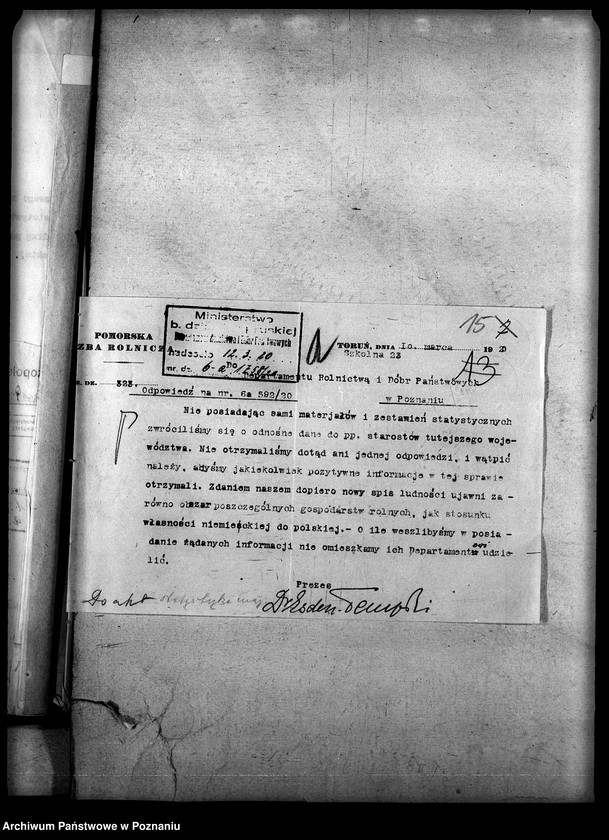 15 2
POMORSKA
ZBA ROLNICZ
Ministerstwo
b. dz
Nadesło 12.3.20
nr. dz. 6-a no
TORUŃ, DNIA 10. marca 1920
Szkolna 23
13
N. DZ. 323.
Departamentu Rolnictwa i Dóbr Państwowych
w Poznaniu
Odpowiedź na nr. 6a 592/20
Nie posiadając sami materjałów i zestawień statystycznych
zwróciliśmy się o odnośne dane do pp. starostów tutejszego woje-
wództwa. Nie otrzymaliśmy dotąd ani jednej odpowiedzi, i wątpić
należy, abyśmy jakiekolwiek pozytywne informacje w tej sprawie
otrzymali. Zdaniem naszem dopiero nowy spis ludności ujawni za-
równo obszar poszczególnych gospodarstw rolnych, jak stosunku
własności niemieckiej do polskiej.- O ile weszlibyśmy w posia-
danie żądanych informacji nie omieszkamy ich Departamentowi udzie-
lić.
Prezes
Do akt
Dr Esden-Tempski
Archiwum Państwowe w Poznaniu